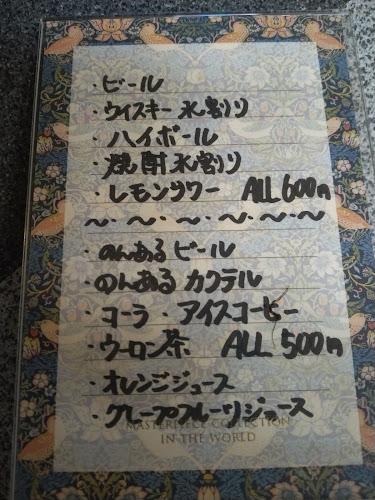 ・ビール
・ウイスキー水割り
・ハイボール
・焼酎水割り
・レモンサワー ALL 600円
〜・〜・〜・〜・〜・〜
・のんある ビール
・のんある カクテル
・コーラ ・アイスコーヒー
・ウーロン茶 ALL 500円
・オレンジジュース
・グレープフルーツジュース
MASTERPIECE COLLECTION
IN THE WORLD